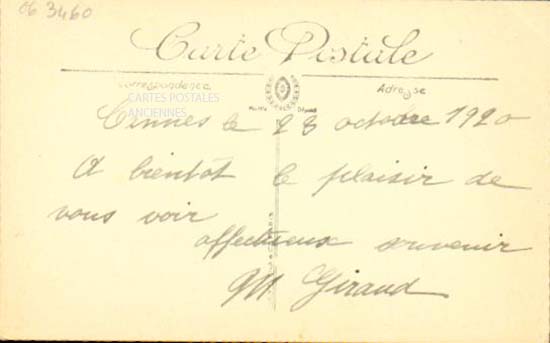 06 3460
Carte Postale
Correspondance Adresse
CARTES POSTALES
ANCIENNES
le 23 octobre 1920
A bientôt le plaisir de
vous voir
affectueux souvenir
M. Giraud